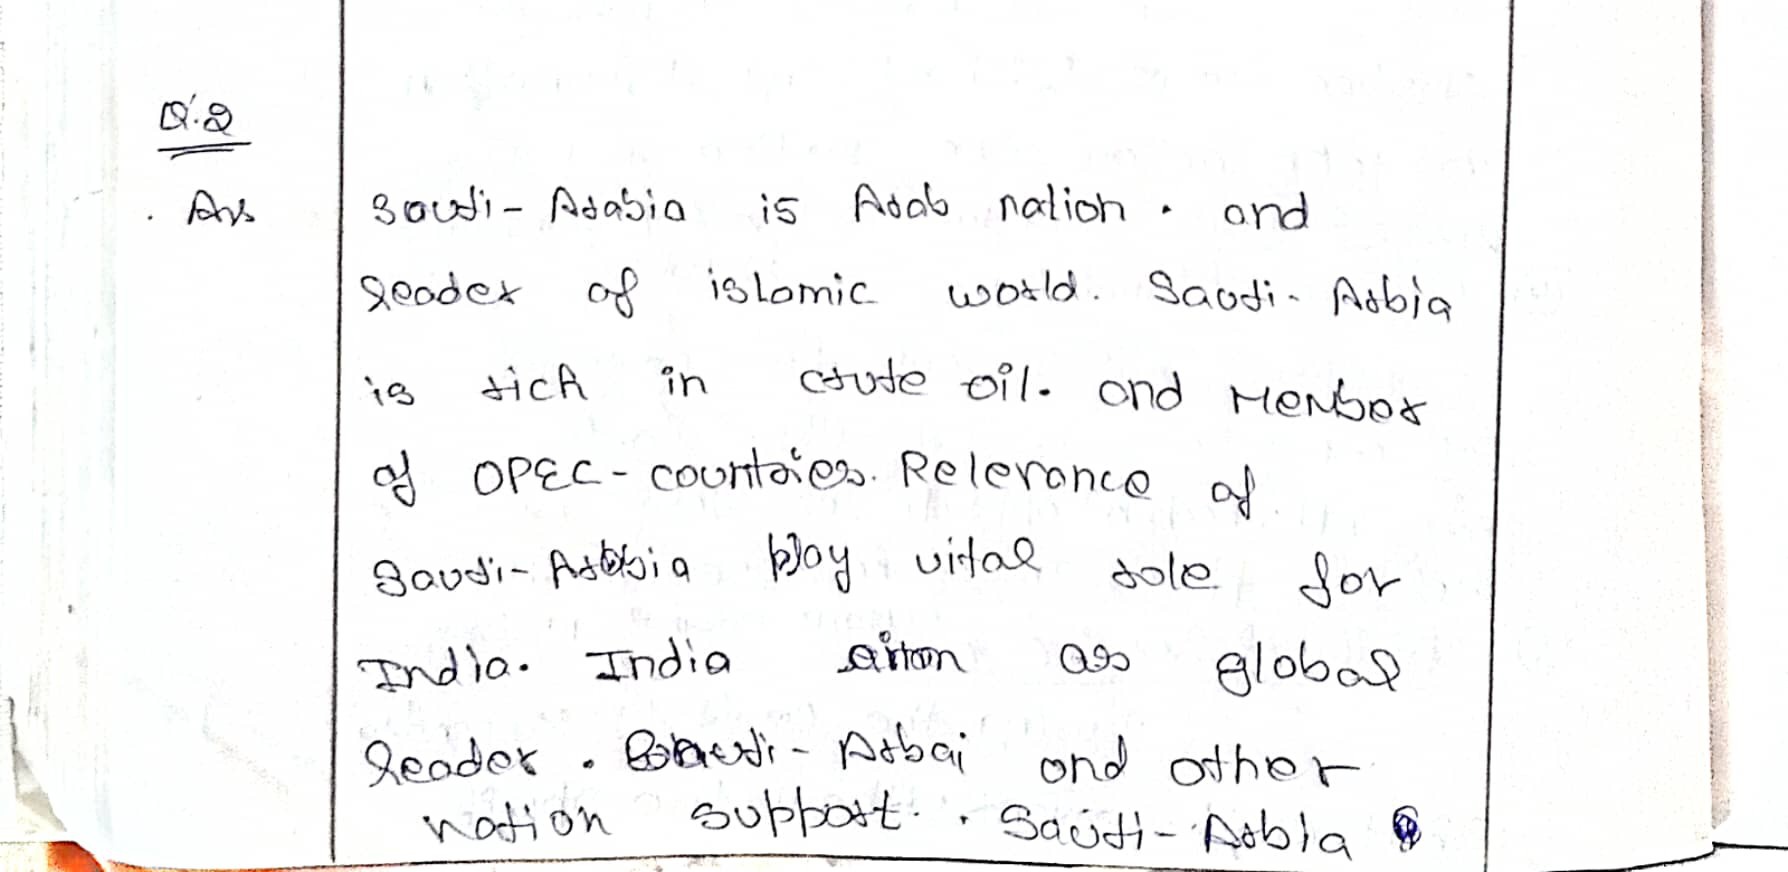 Q.2
Ans Saudi-Arabia is Arab nation. and
leader of islamic world. Saudi-Arbia
is rich in crute oil. and Member
of OPEC-countries. Relevance of
Saudi-Arbia play vital role for
India. India as global
leader. Saudi-Arbai and other
nation support. Saudi-Arbia